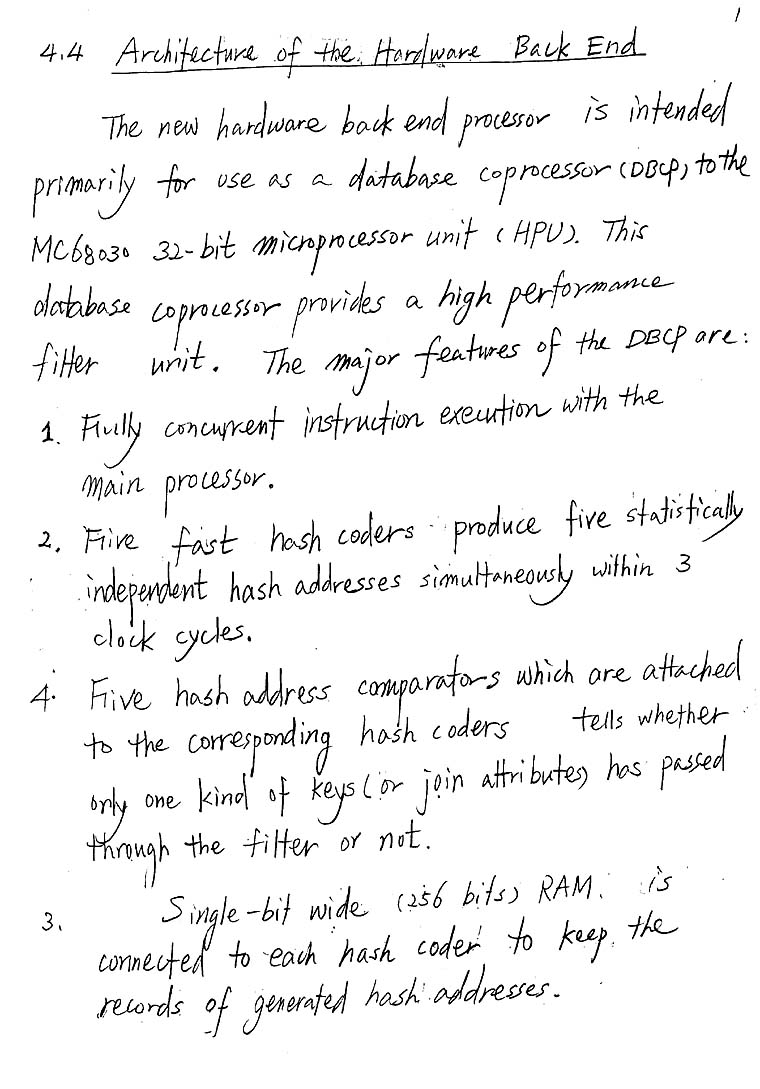 1
4.4 Architecture of the Hardware Back End
The new hardware back end processor is intended
primarily for use as a database coprocessor (DBCP) to the
MC68030 32-bit microprocessor unit (HPU). This
database coprocessor provides a high performance
filter unit. The major features of the DBCP are:
1. Fully concurrent instruction execution with the
main processor.
2. Five fast hash coders produce five statistically
independent hash addresses simultaneously within 3
clock cycles.
4. Five hash address comparators which are attached
to the corresponding hash coders tells whether
only one kind of keys (or join attributes) has passed
through the filter or not.
3. Single-bit wide (256 bits) RAM. is
connected to each hash coder to keep the
records of generated hash addresses.